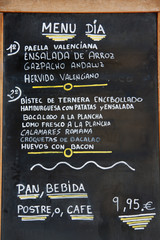 MENU DÍA
1º PAELLA VALENCIANA
ENSALADA DE ARROZ
GAZPACHO ANDALUZ
HERVIDO VALENCIANO
2º BISTEC DE TERNERA ENCEBOLLADO
HAMBURGUESA CON PATATAS y ENSALADA
BACALADO A LA PLANCHA
LOMO FRESCO A LA PLANCHA
CALAMARES ROMANA
CROQUETAS DE BACALAO
HUEVOS CON BACON
PAN, BEBIDA
POSTRE, O, CAFE 9,95€